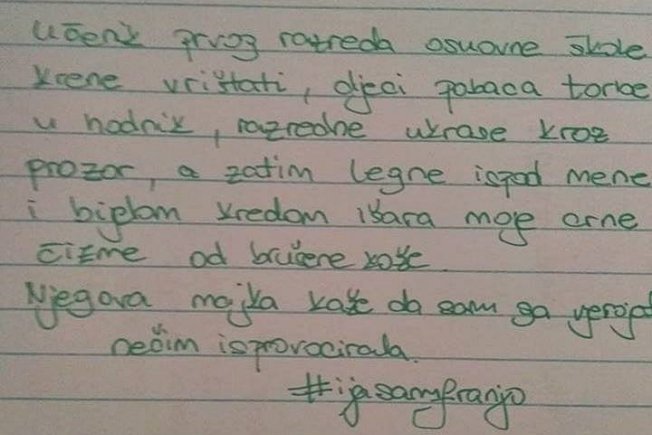 Učenik prvog razreda osnovne škole
krene vrištati, djeci pobaca torbe
u hodnik, razredne ukrase kroz
prozor, a zatim legne ispod mene
i bijelom kredom išara moje crne
čizme od brušene kože.
Njegova majka kaže da sam ga vjeroja
nečim isprovocirala.
#ijasamfranjo